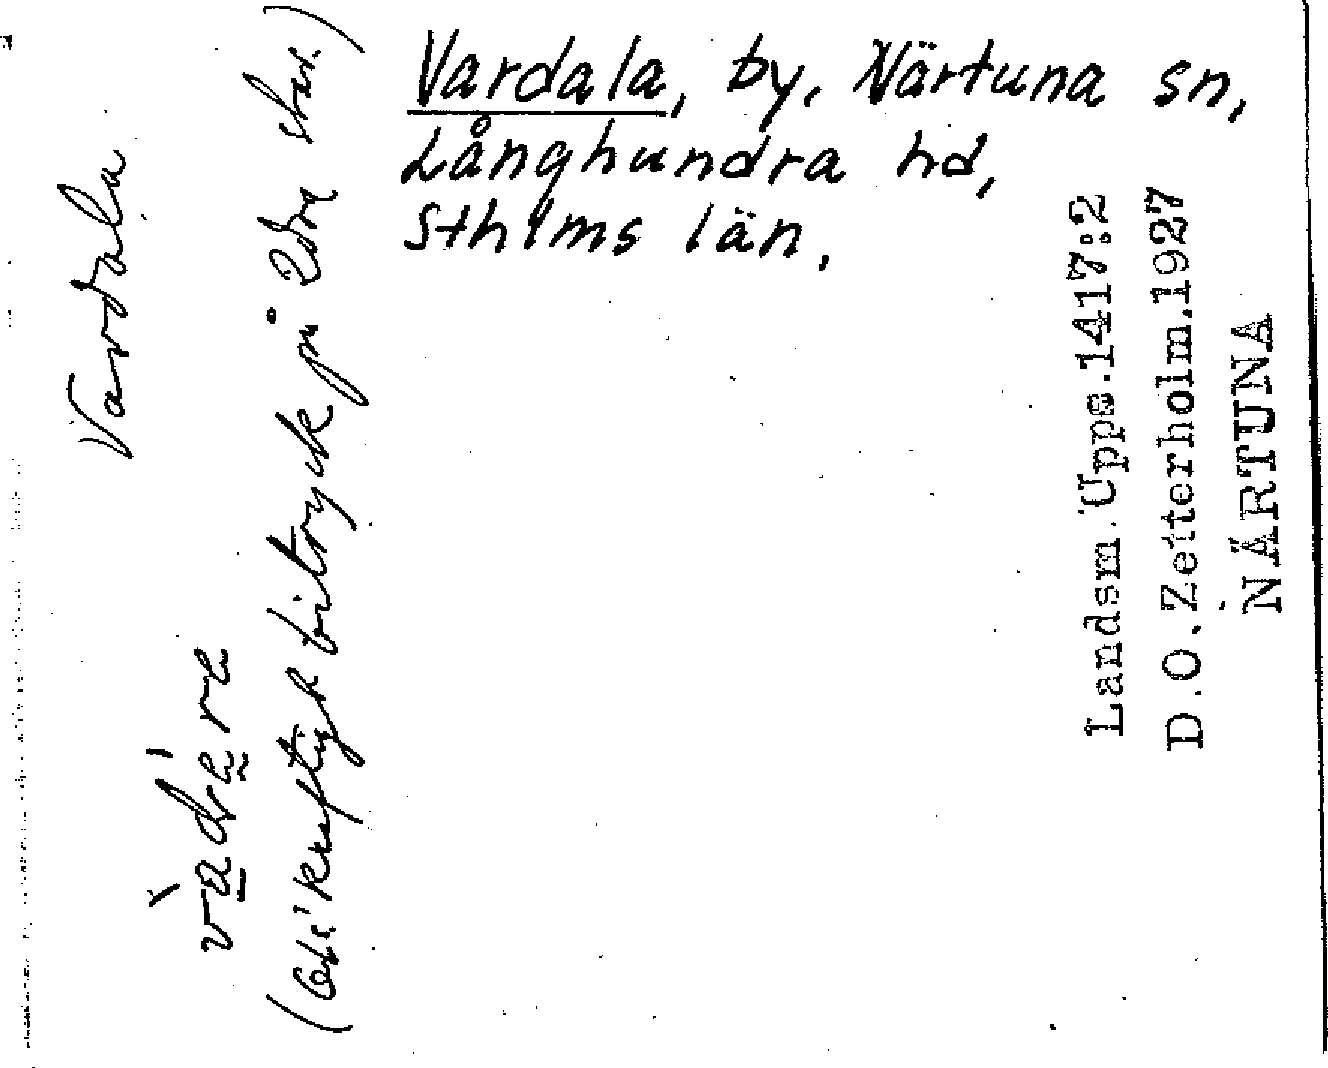 Vardala, by, Närtuna sn,
Långhundra hd,
Sthlms län.
Vardala
vàdére
(Obs! kraftigt bitryck på 2dra stav.)
Landsm.Upps.1417:2
D.O.Zetterholm.1927
NÄRTUNA